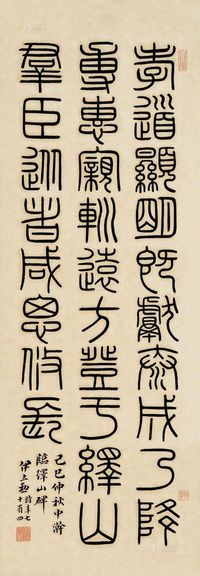 孝道顯明既獻泰成乃降
專惠親巡遠方登于繹山
羣臣從者咸思攸長
己巳仲秋中澣
臨繹山碑
伊立勳時年七十有四